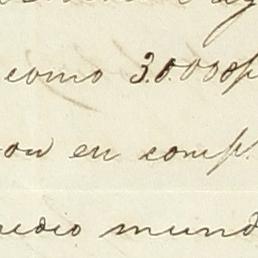 como 30.000 p
on en comp.
medio mund